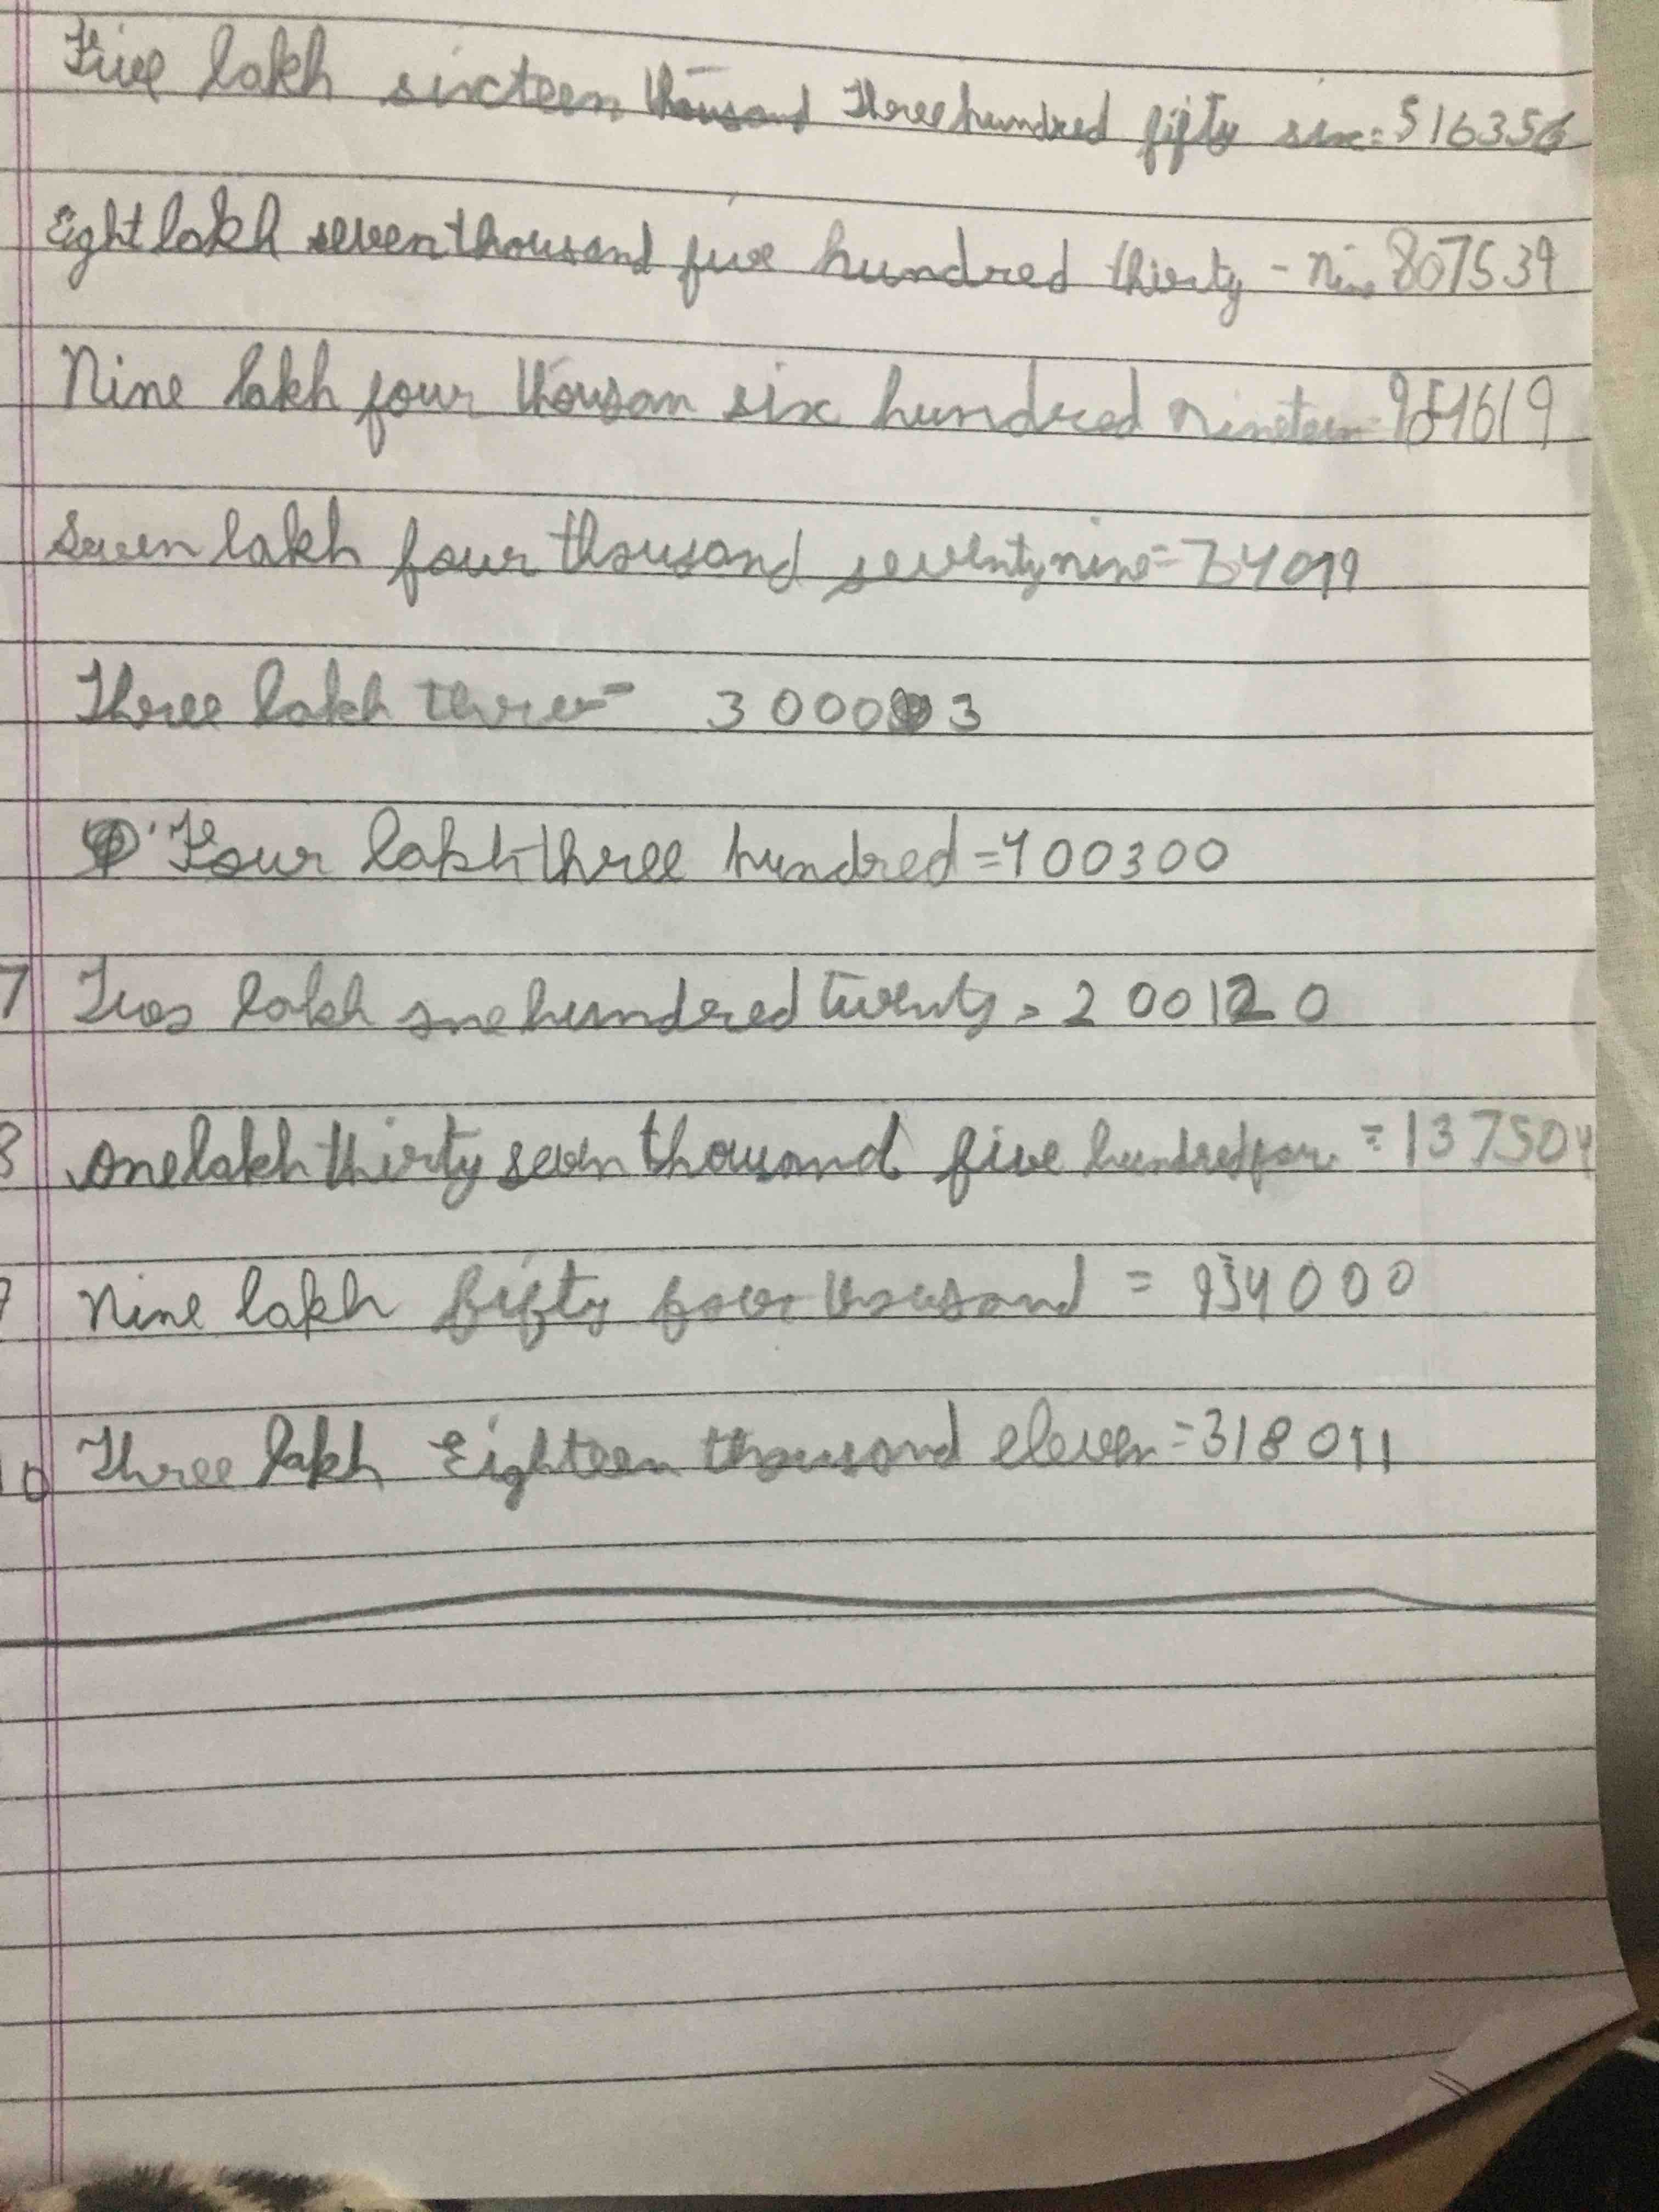 Five lakh sixteen thousand Three hundred fifty six = 516356
Eight lakh seven thousand five hundred thirty - nine 807539
Nine lakh four thousan six hundred nineteen
Seven lakh four thousand seventy nine =
Three lakh three = 300003
Four lakh three hundred = 400300
7 Two lakh one hundred twenty = 200120
8 one lakh thirty seven thousand five hundred four = 137504
9 Nine lakh fifty four thousand = 954000
10 Three lakh Eighteen thousand eleven = 318011